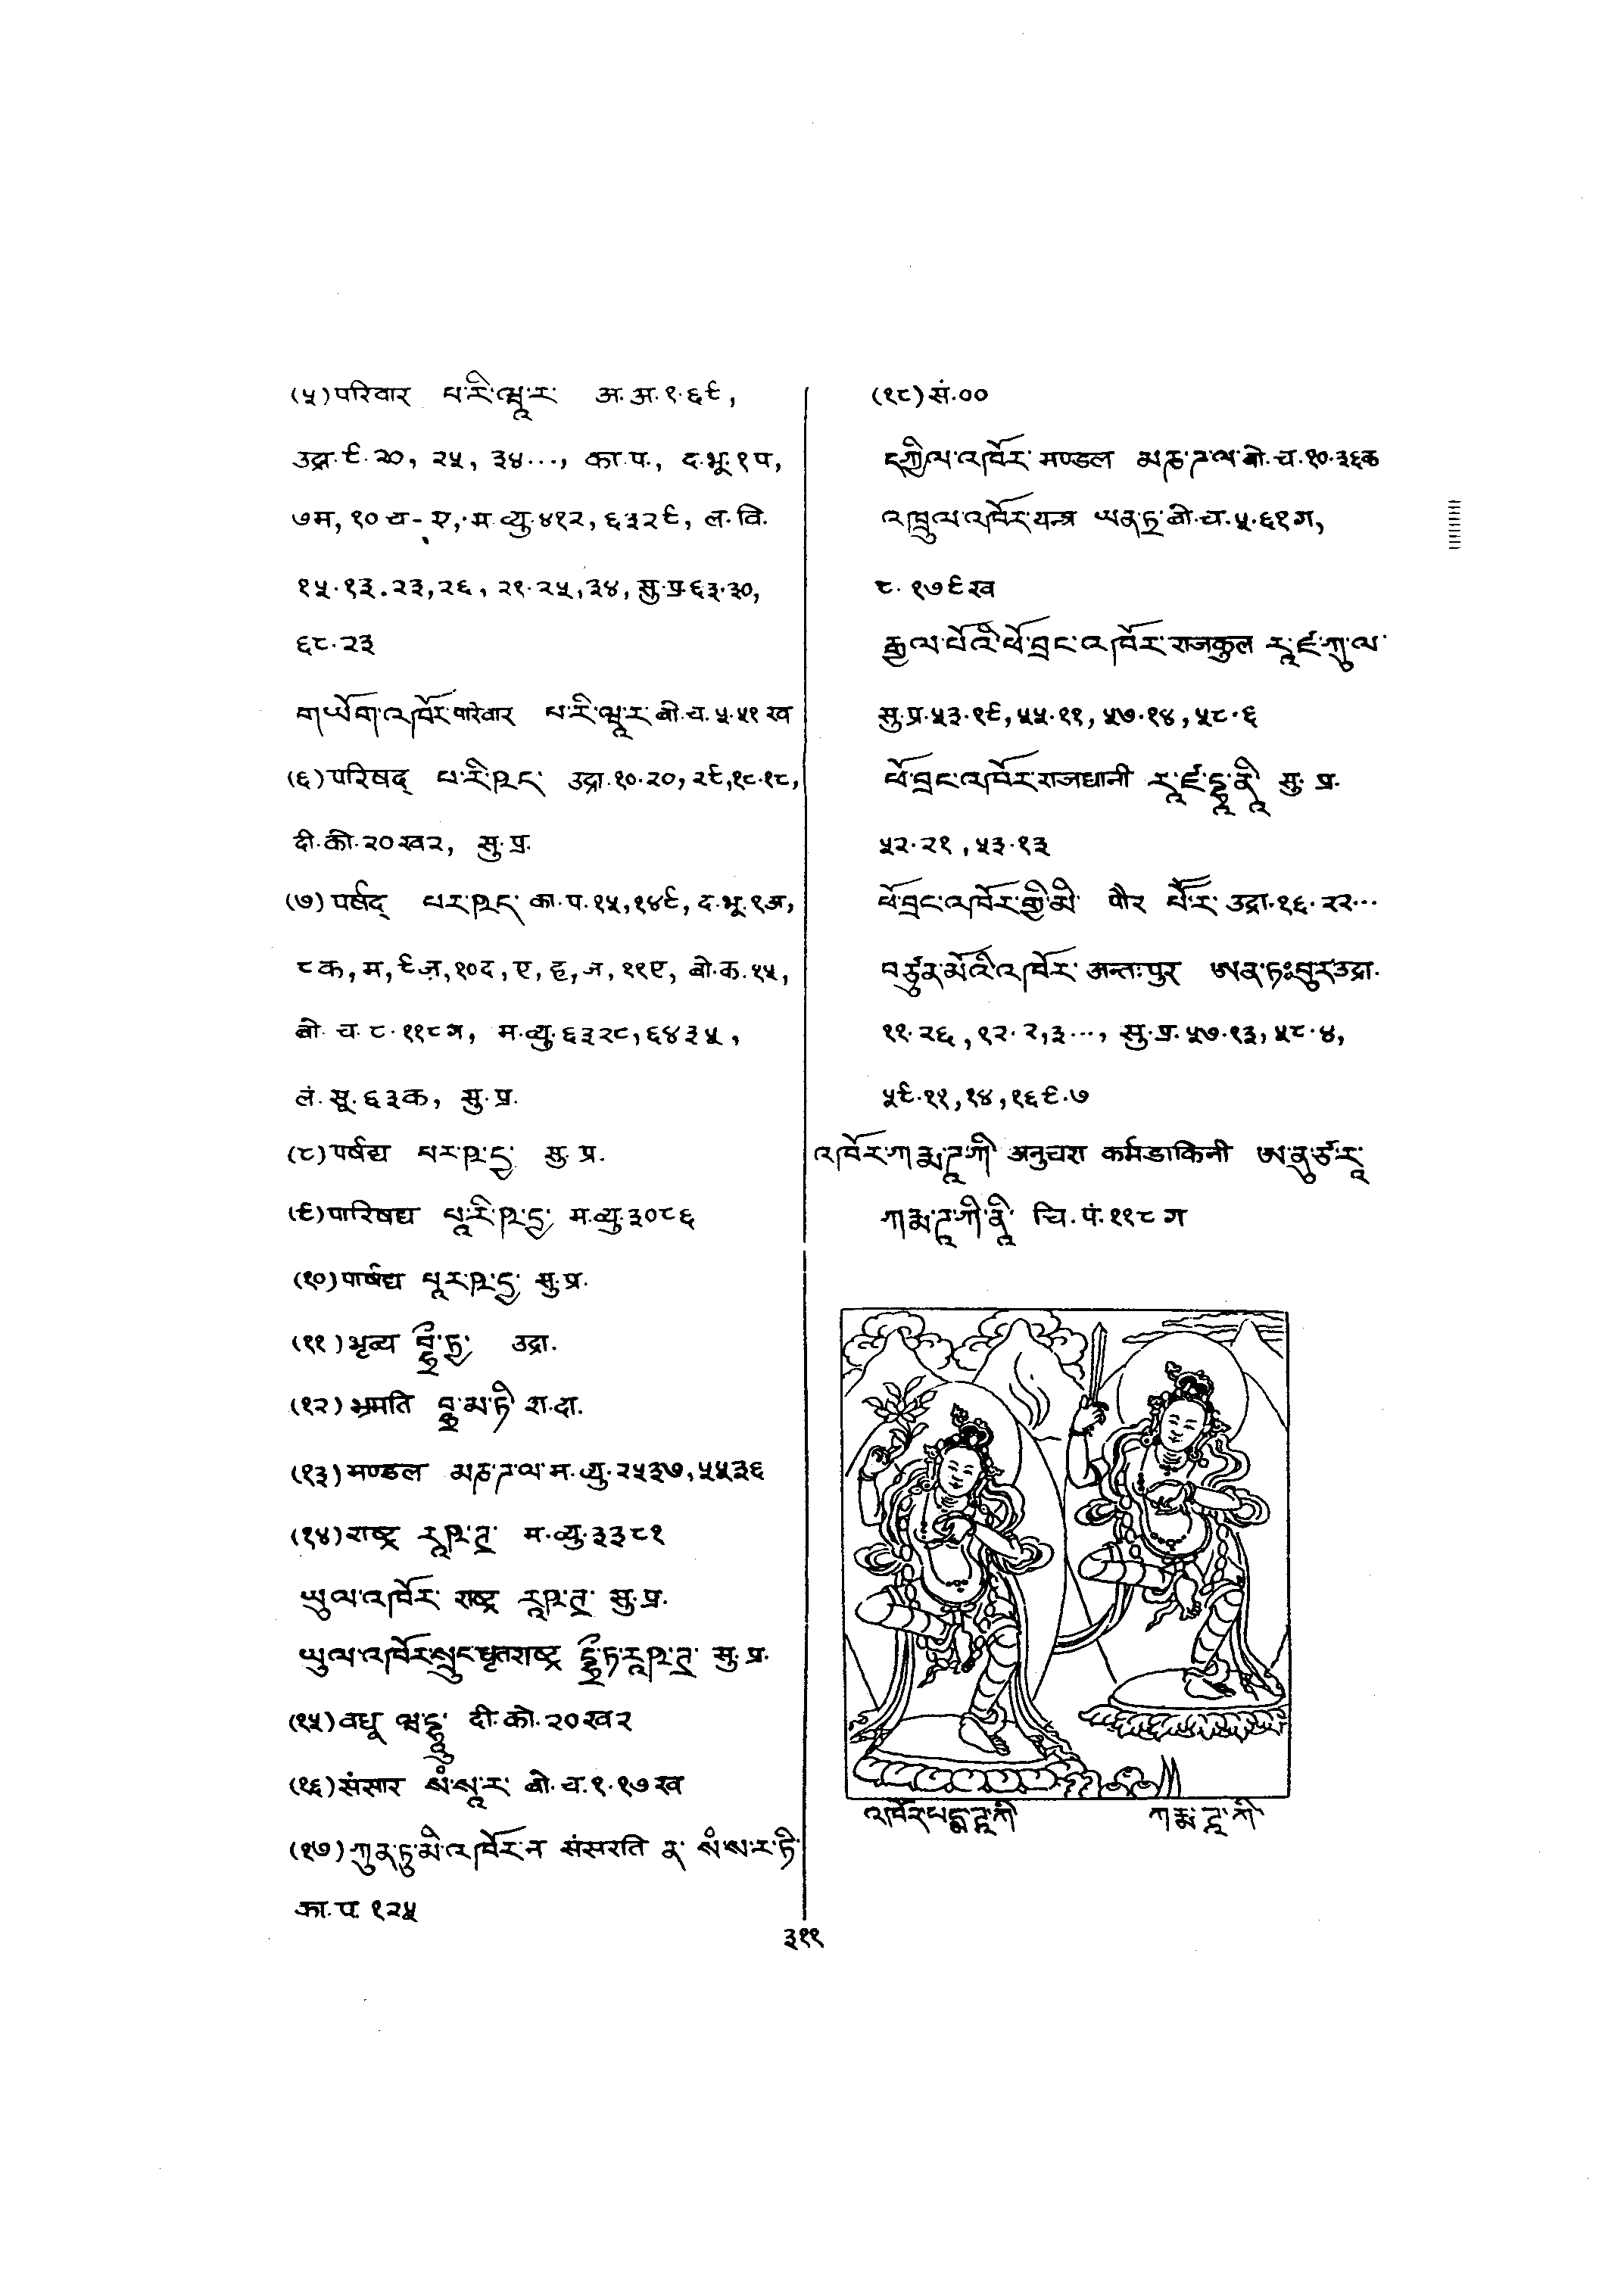 (५) परिवार པ་རི་ཝཱ་ར་ अ.अ.१.६९,
उद्रा.९.२०, २५, ३४..., का.प., द.भू.१प,
७म, १० च-ए, म.व्यु.४१२, ६३२९, ल.वि.
१५.१३.२३,२६, २१.२५,३४, सु.प्र.६३.३०,
६८.२३
གཡོག་འཁོར་ परिवार པ་རི་ཝཱ་ར་ बो.च.५.५१ख
(६) परिषद् པ་རི་ཥད་ उद्रा.१०.२०, २९,१८.१८,
दी.को.२०ख२, सु.प्र.
(७) पर्षद् པར་ཥད་ का.प.१५,१४९, द.भू.१अ,
८क, म, ९ज़,१०द, ए, ह, ज, ११ए, बो.क.१५,
बो.च.८.११८ग, म.व्यु.६३२८,६४३५,
लं.सू.६३क, सु.प्र.
(८) पर्षद्य པར་ཥ་དྱ་ सु.प्र.
(९) पारिषद्य པཱ་རི་ཥ་དྱ་ म.व्यु.३०८६
(१०) पार्षद्य པཱར་ཥ་དྱ་ सु.प्र.
(११) भृत्य བྷྲྀ་ཏྱ་ उद्रा.
(१२) भ्रमति བྷྲ་མ་ཏི་ श.दा.
(१३) मण्डल མཎ་ཌ་ལ་ म.व्यु.२५३७,५५३६
(१४) राष्ट्र རཱཥ་ཊྲ་ म.व्यु.३३८१
ཡུལ་འཁོར་ राष्ट्र རཱཥ་ཊྲ་ सु.प्र.
ཡུལ་འཁོར་སྲུང་ धृतराष्ट्र དྷྲྀ་ཏ་རཱཥ་ཊྲ་ सु.प्र.
(१५) वधू ཝ་དྷཱུ་ दी.को.२०ख२
(१६) संसार སཾ་སཱ་ར་ बो.च.१.१७ख
(१७) ཀུན་ཏུ་མི་འཁོར་ न संसरति ན་ སཾ་ས་ར་ཏི་
का.प. १२५
(१८) सं.००
དཀྱིལ་འཁོར་ मण्डल མཎ་ཌ་ལ་ बो.च.१०.३६क
འཁྲུལ་འཁོར་ यन्त्र ཡན་ཏྲ་ बो.च.५.६१ग,
८.१७९ख
རྒྱལ་པོའི་ཕོ་བྲང་འཁོར་ राजकुल རཱ་ཛ་ཀུ་ལ་
सु.प्र.५३.१९,५५.११, ५७.१४,५८.६
ཕོ་བྲང་འཁོར་ राजधानी རཱ་ཛ་དྷཱ་ནཱི་ सु.प्र.
५२.२१,५३.१३
ཕོ་བྲང་འཁོར་གྱི་མི་ पौर པཽ་ར་ उद्रा.१६.२२...
བཙུན་མོའི་འཁོར་ अन्तःपुर ཨན་ཏཿཔུར་ उद्रा.
११.२६,१२.२,३..., सु.प्र.५७.१३, ५८.४,
५९.११,१४,१६९.७
འཁོར་ཀརྨ་ཌཱ་ཀི་ अनुचरा कर्मडाकिनी ཨ་ནུ་ཙ་རཱ་
ཀརྨ་ཌཱ་ཀི་ནཱི་ चि.पं.११८ग
འཁོར་པདྨ་ཌཱ་ཀི་ ཀརྨ་ཌཱ་ཀི་
३११